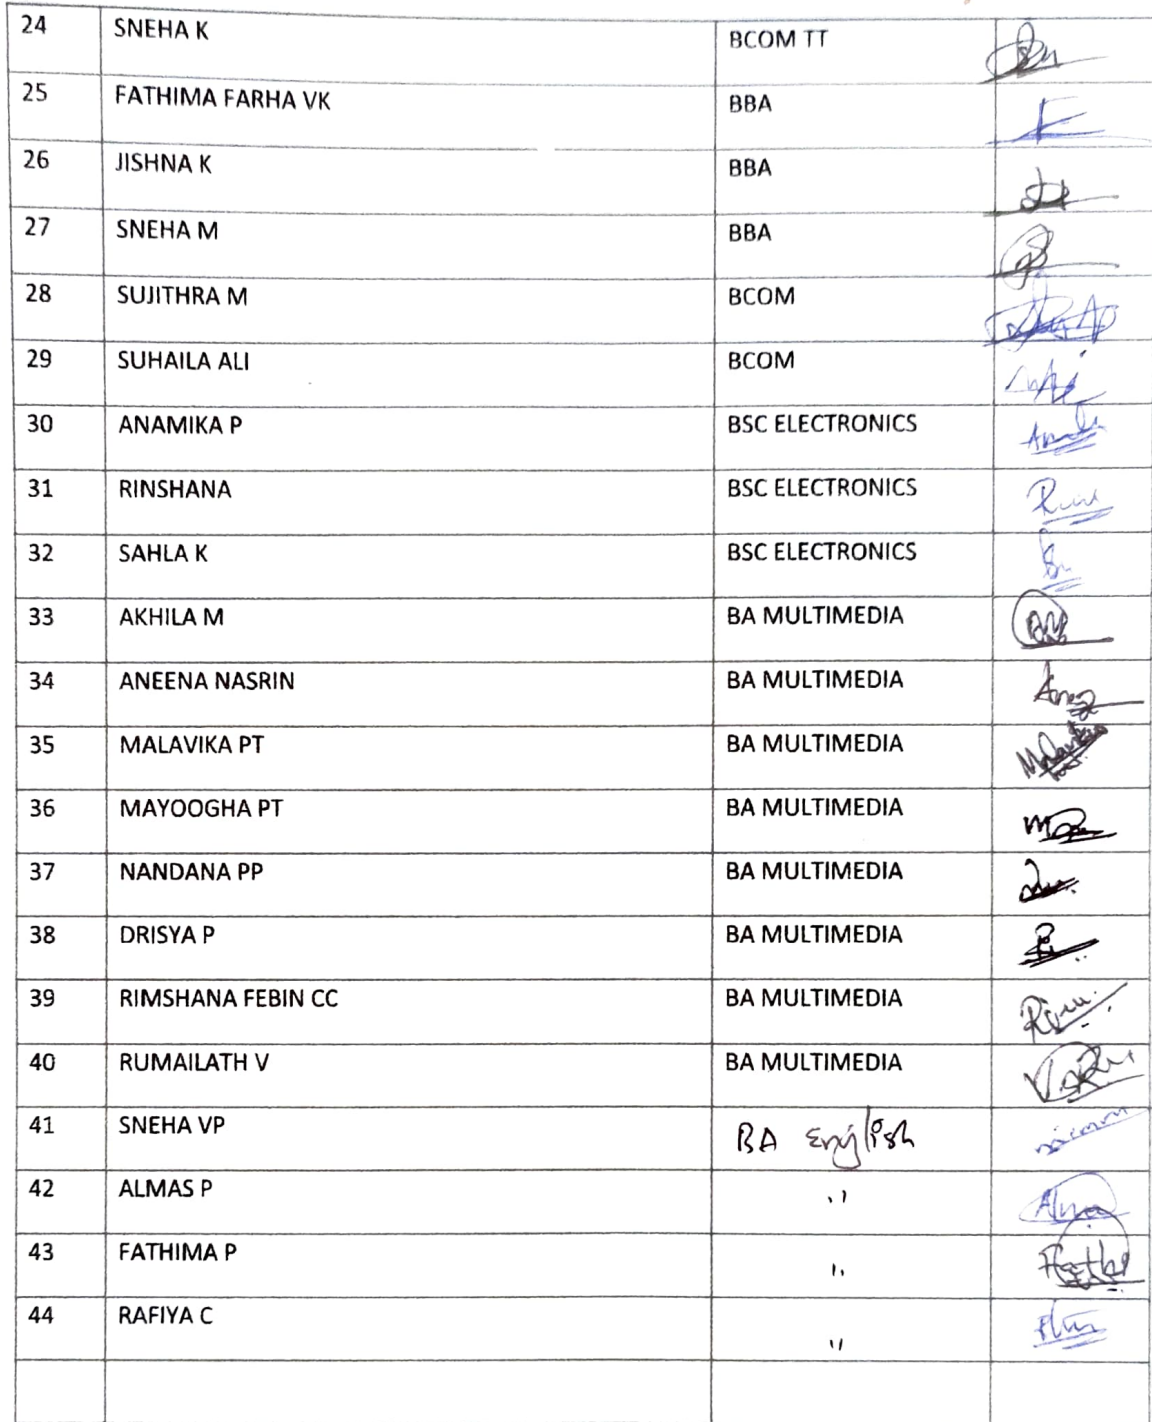 24 SNEHA K BCOM TT
25 FATHIMA FARHA VK BBA
26 JISHNA K BBA
27 SNEHA M BBA
28 SUJITHRA M BCOM
29 SUHAILA ALI BCOM
30 ANAMIKA P BSC ELECTRONICS
31 RINSHANA BSC ELECTRONICS
32 SAHLA K BSC ELECTRONICS
33 AKHILA M BA MULTIMEDIA
34 ANEENA NASRIN BA MULTIMEDIA
35 MALAVIKA PT BA MULTIMEDIA
36 MAYOOGHA PT BA MULTIMEDIA
37 NANDANA PP BA MULTIMEDIA
38 DRISYA P BA MULTIMEDIA
39 RIMSHANA FEBIN CC BA MULTIMEDIA
40 RUMAILATH V BA MULTIMEDIA
41 SNEHA VP BA English
42 ALMAS P "
43 FATHIMA P "
44 RAFIYA C "